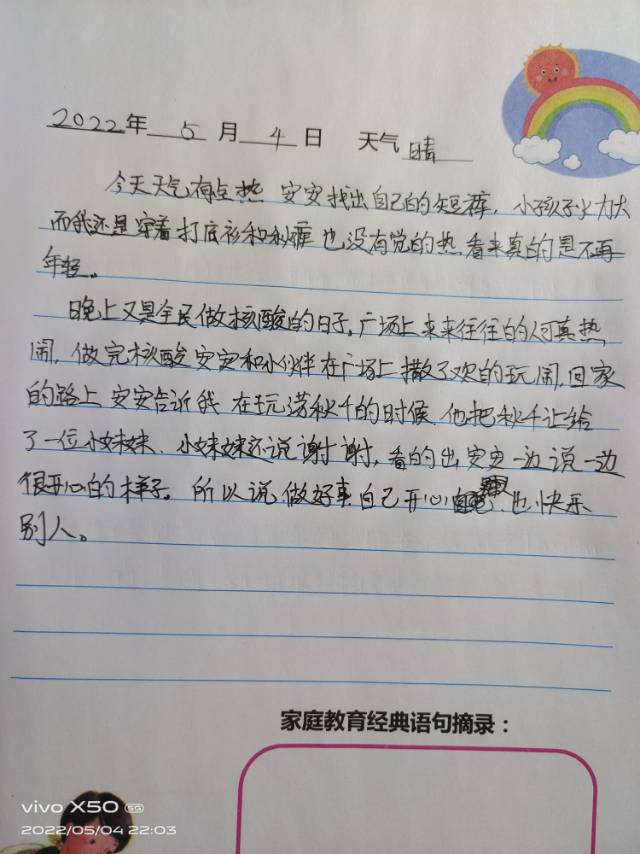 2022年 5 月 4 日 天气 晴
今天天气有点热 安安找出自己的短裤，小孩子火力大
而我还是穿着打底衫和秋裤 也没有觉的热 看来真的是不再
年轻。
晚上又是全民做核酸的日子，广场上来来往往的人可真热
闹，做完核酸安安和小伙伴在广场上撒了欢的玩闹，回家
的路上 安安告诉我 在玩荡秋千的时候 他把秋千让给
了一位小妹妹，小妹妹还说谢谢，看的出安安一边说一边
很开心的样子。所以说做好事自己开心 也快乐
别人。
家庭教育经典语句摘录：
vivo X50 5G
2022/05/04 22:03